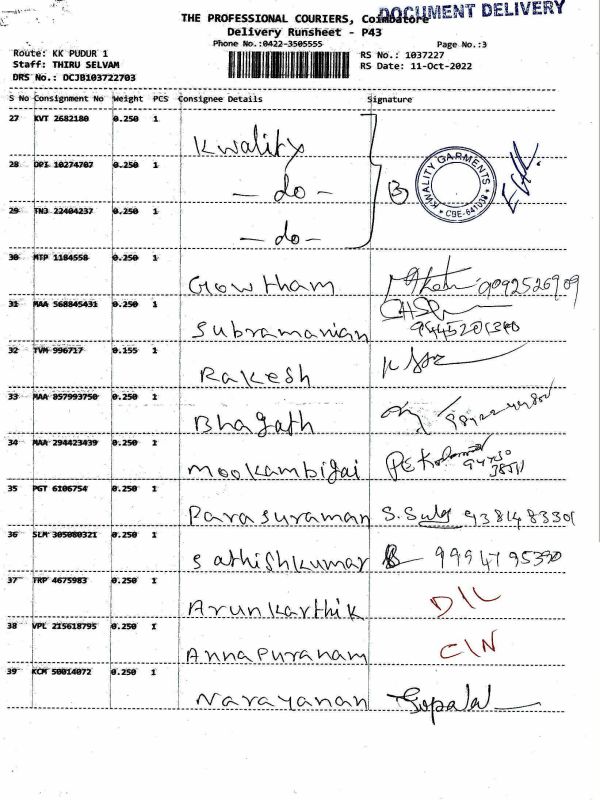 DOCUMENT DELIVERY
THE PROFESSIONAL COURIERS, Coimbatore
Delivery Runsheet - P43
Phone No.:0422-3505555 Page No.:3
Route: KK PUDUR 1 RS No.: 1037227
Staff: THIRU SELVAM RS Date: 11-Oct-2022
DRS No.: DCJB103722703
S No Consignment No Weight PCS Consignee Details Signature
27 KVT 2682180 0.250 1 Kwality
28 OPI 10274707 0.250 1 - do -
KWALITY GARMENTS
* CBE-641038 *
29 TNJ 22404237 0.250 1 - do -
30 MTP 1184558 0.250 1 Gowtham 9092526909
31 MAA 568845431 0.250 1 Subramanian
32 TVM 996717 0.155 1 Rakesh
33 MAA 857993750 0.250 1 Bhagath
34 MAA 294423439 0.250 1 Mookambigai
35 PGT 6106754 0.250 1 Parasuraman 9381483301
36 SLM 305080321 0.250 1 Sathishkumar 9994795390
37 TRP 4675983 0.250 1 Arunkarthik D/L
38 VPL 215618795 0.250 1 Annapuranam C/N
39 KCM 50014072 0.250 1 Narayanan Gopalal